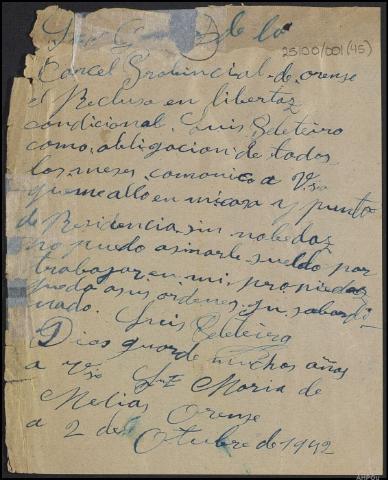 de la
25100/001 (45)
Carcel Probincial de orense
el Recluso en libertaz
condicional. Luis Seteiro
como obligacion de todos
los meses, comonico a Vso
que me allo en mi casa y punto
de Residencia sin nobedaz
no puedo asinarle sueldo por
trabajar en mi propiedaz
queda a sus ordenes, su subordi
nado. Luis
Dios guarde muchos años
a Vso Sta Maria de
Melias Orense
a 2 de Otubre de 1942
AHPOU